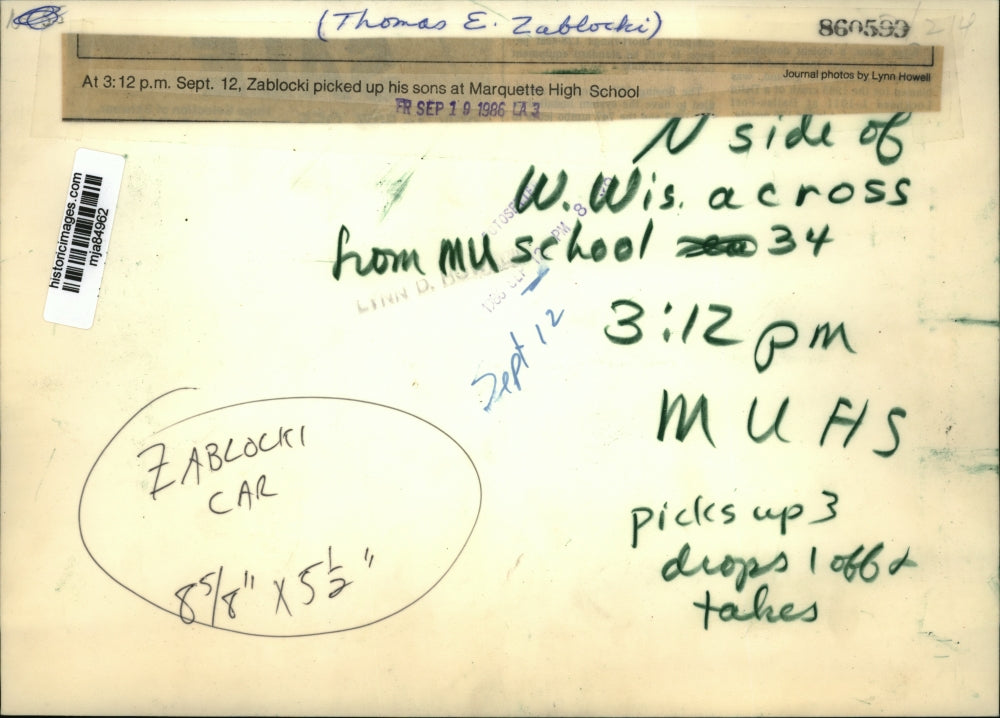 (Thomas E. Zablocki)
860599
Journal photos by Lynn Howell
At 3:12 p.m. Sept. 12, Zablocki picked up his sons at Marquette High School
FR SEP 19 1986 LA 3
N side of
W. Wis. across
from MU school 34
historicimages.com
mja84962
LYNN D.
Sept 12
3:12 pm
MUHS
picks up 3
drops 1 off &
takes
ZABLOCKI
CAR
8 5/8" X 5 1/2"